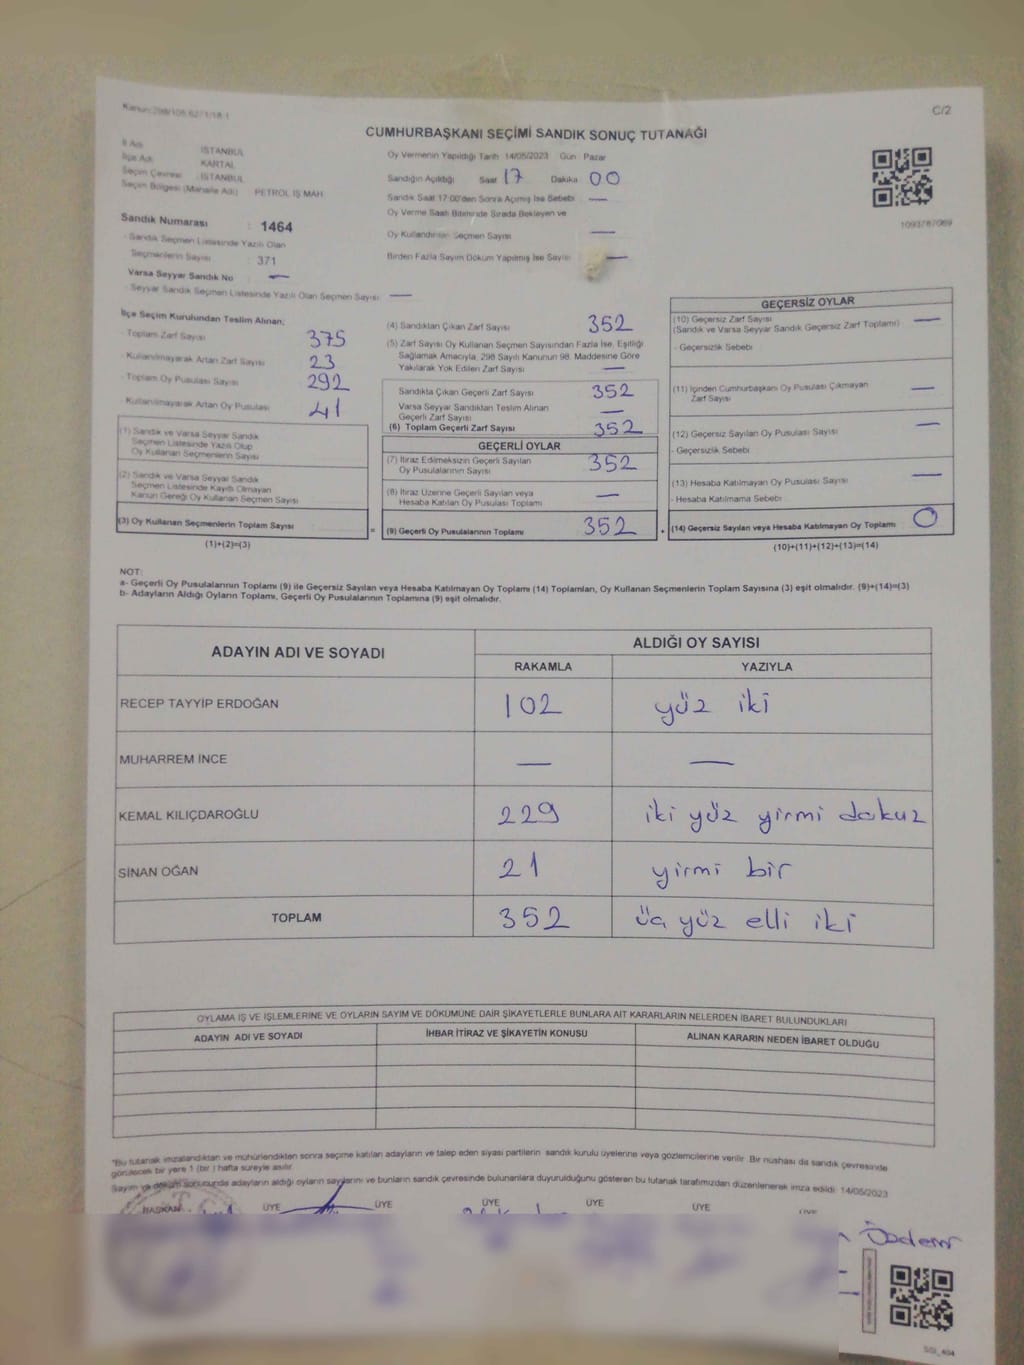 Kanun:298/105 627/1/18-1
C/2
CUMHURBAŞKANI SEÇİMİ SANDIK SONUÇ TUTANAĞI
İl Adı İSTANBUL
İlçe Adı KARTAL
Seçim Çevresi : İSTANBUL
Seçim Bölgesi (Mahalle Adı) PETROL İŞ MAH
Sandık Numarası : 1464
- Sandık Seçmen Listesinde Yazılı Olan
Seçmenlerin Sayısı : 371
Varsa Seyyar Sandık No —
- Seyyar Sandık Seçmen Listesinde Yazılı Olan Seçmen Sayısı —
Oy Vermenin Yapıldığı Tarih 14/05/2023 Gün Pazar
Sandığın Açıldığı Saat 17 Dakika 00
Sandık Saat 17:00'den Sonra Açılmış İse Sebebi —
Oy Verme Saati Bitiminde Sırada Bekleyen ve
Oy Kullandırılan Seçmen Sayısı —
Birden Fazla Sayım Döküm Yapılmış İse Sayısı —
1093787069
İlçe Seçim Kurulundan Teslim Alınan;
- Toplam Zarf Sayısı 375
- Kullanılmayarak Artan Zarf Sayısı 23
- Toplam Oy Pusulası Sayısı 292
- Kullanılmayarak Artan Oy Pusulası 41
(1) Sandık ve Varsa Seyyar Sandık
Seçmen Listesinde Yazılı Olup
Oy Kullanan Seçmenlerin Sayısı
(2) Sandık ve Varsa Seyyar Sandık
Seçmen Listesinde Kayıtlı Olmayan
Kanun Gereği Oy Kullanan Seçmen Sayısı
(3) Oy Kullanan Seçmenlerin Toplam Sayısı =
(1)+(2)=(3)
(4) Sandıktan Çıkan Zarf Sayısı 352
(5) Zarf Sayısı Oy Kullanan Seçmen Sayısından Fazla İse, Eşitliği
Sağlamak Amacıyla, 298 Sayılı Kanunun 98. Maddesine Göre
Yakılarak Yok Edilen Zarf Sayısı —
Sandıkta Çıkan Geçerli Zarf Sayısı 352
Varsa Seyyar Sandıktan Teslim Alınan
Geçerli Zarf Sayısı —
(6) Toplam Geçerli Zarf Sayısı 352
GEÇERLİ OYLAR
(7) İtiraz Edilmeksizin Geçerli Sayılan
Oy Pusulalarının Sayısı 352
(8) İtiraz Üzerine Geçerli Sayılan veya
Hesaba Katılan Oy Pusulası Toplamı —
(9) Geçerli Oy Pusulalarının Toplamı 352 +
GEÇERSİZ OYLAR
(10) Geçersiz Zarf Sayısı —
(Sandık ve Varsa Seyyar Sandık Geçersiz Zarf Toplamı)
- Geçersizlik Sebebi
(11) İçinden Cumhurbaşkanı Oy Pusulası Çıkmayan
Zarf Sayısı —
(12) Geçersiz Sayılan Oy Pusulası Sayısı —
- Geçersizlik Sebebi
(13) Hesaba Katılmayan Oy Pusulası Sayısı —
- Hesaba Katılmama Sebebi
(14) Geçersiz Sayılan veya Hesaba Katılmayan Oy Toplamı 0
(10)+(11)+(12)+(13)=(14)
NOT:
a- Geçerli Oy Pusulalarının Toplamı (9) ile Geçersiz Sayılan veya Hesaba Katılmayan Oy Toplamı (14) Toplamları, Oy Kullanan Seçmenlerin Toplam Sayısına (3) eşit olmalıdır. (9)+(14)=(3)
b- Adayların Aldığı Oyların Toplamı, Geçerli Oy Pusulalarının Toplamına (9) eşit olmalıdır.
ADAYIN ADI VE SOYADI ALDIĞI OY SAYISI
RAKAMLA YAZIYLA
RECEP TAYYİP ERDOĞAN 102 yüz iki
MUHARREM İNCE — —
KEMAL KILIÇDAROĞLU 229 iki yüz yirmi dokuz
SİNAN OĞAN 21 yirmi bir
TOPLAM 352 üç yüz elli iki
OYLAMA İŞ VE İŞLEMLERİNE VE OYLARIN SAYIM VE DÖKÜMÜNE DAİR ŞİKAYETLERLE BUNLARA AİT KARARLARIN NELERDEN İBARET BULUNDUKLARI
ADAYIN ADI VE SOYADI İHBAR İTİRAZ VE ŞİKAYETİN KONUSU ALINAN KARARIN NEDEN İBARET OLDUĞU
*Bu tutanak imzalandıktan ve mühürlendikten sonra seçime katılan adayların ve talep eden siyasi partilerin sandık kurulu üyelerine veya gözlemcilerine verilir. Bir nüshası da sandık çevresinde
görülecek bir yere 1 (bir) hafta süreyle asılır.
Sayım ve döküm sonucunda adayların aldığı oyların sayılarını ve bunların sandık çevresinde bulunanlara duyurulduğunu gösteren bu tutanak tarafımızdan düzenlenerek imza edildi. 14/05/2023
BAŞKAN ÜYE ÜYE ÜYE ÜYE ÜYE